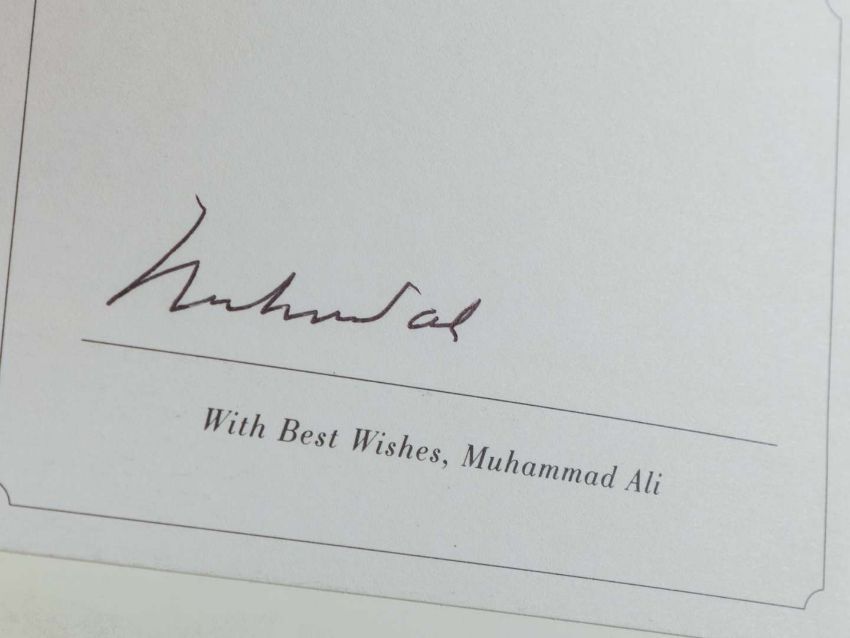 Muhammad Ali
With Best Wishes, Muhammad Ali